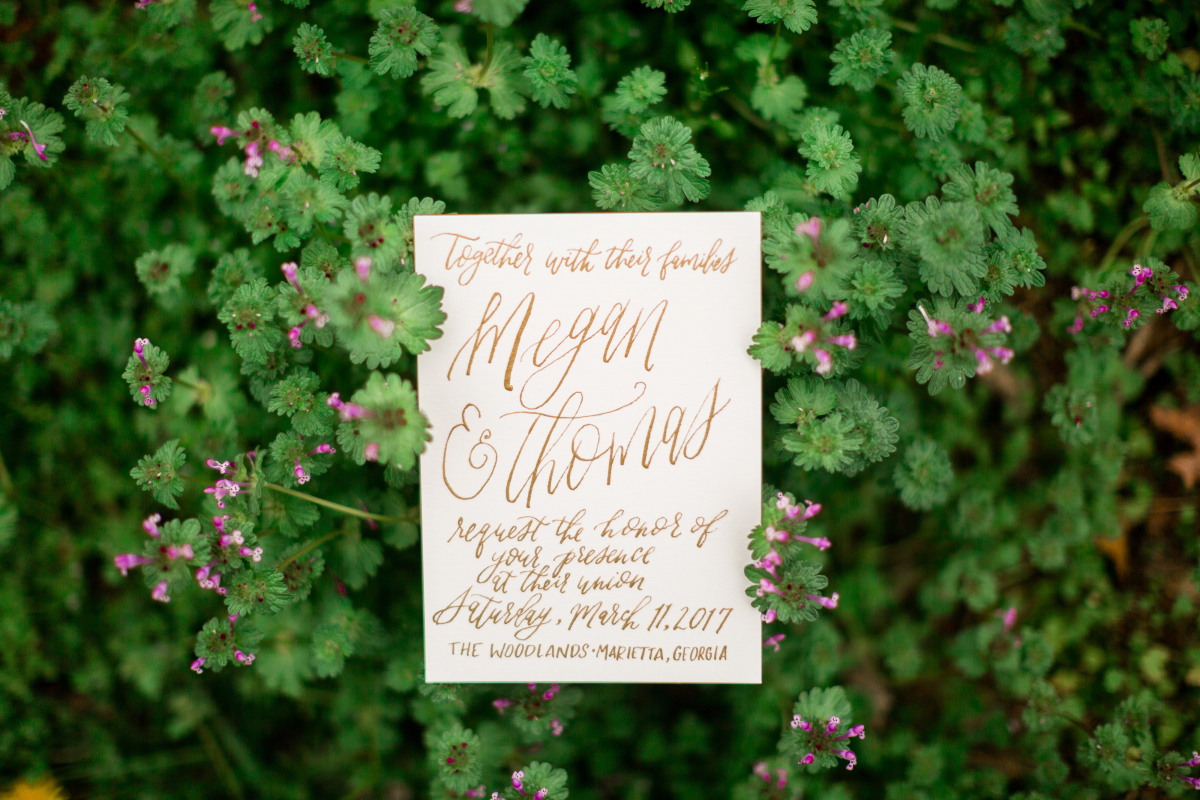 Together with their families
Megan
& Thomas
request the honor of
your presence
at their union
Saturday, March 11, 2017
THE WOODLANDS • MARIETTA, GEORGIA